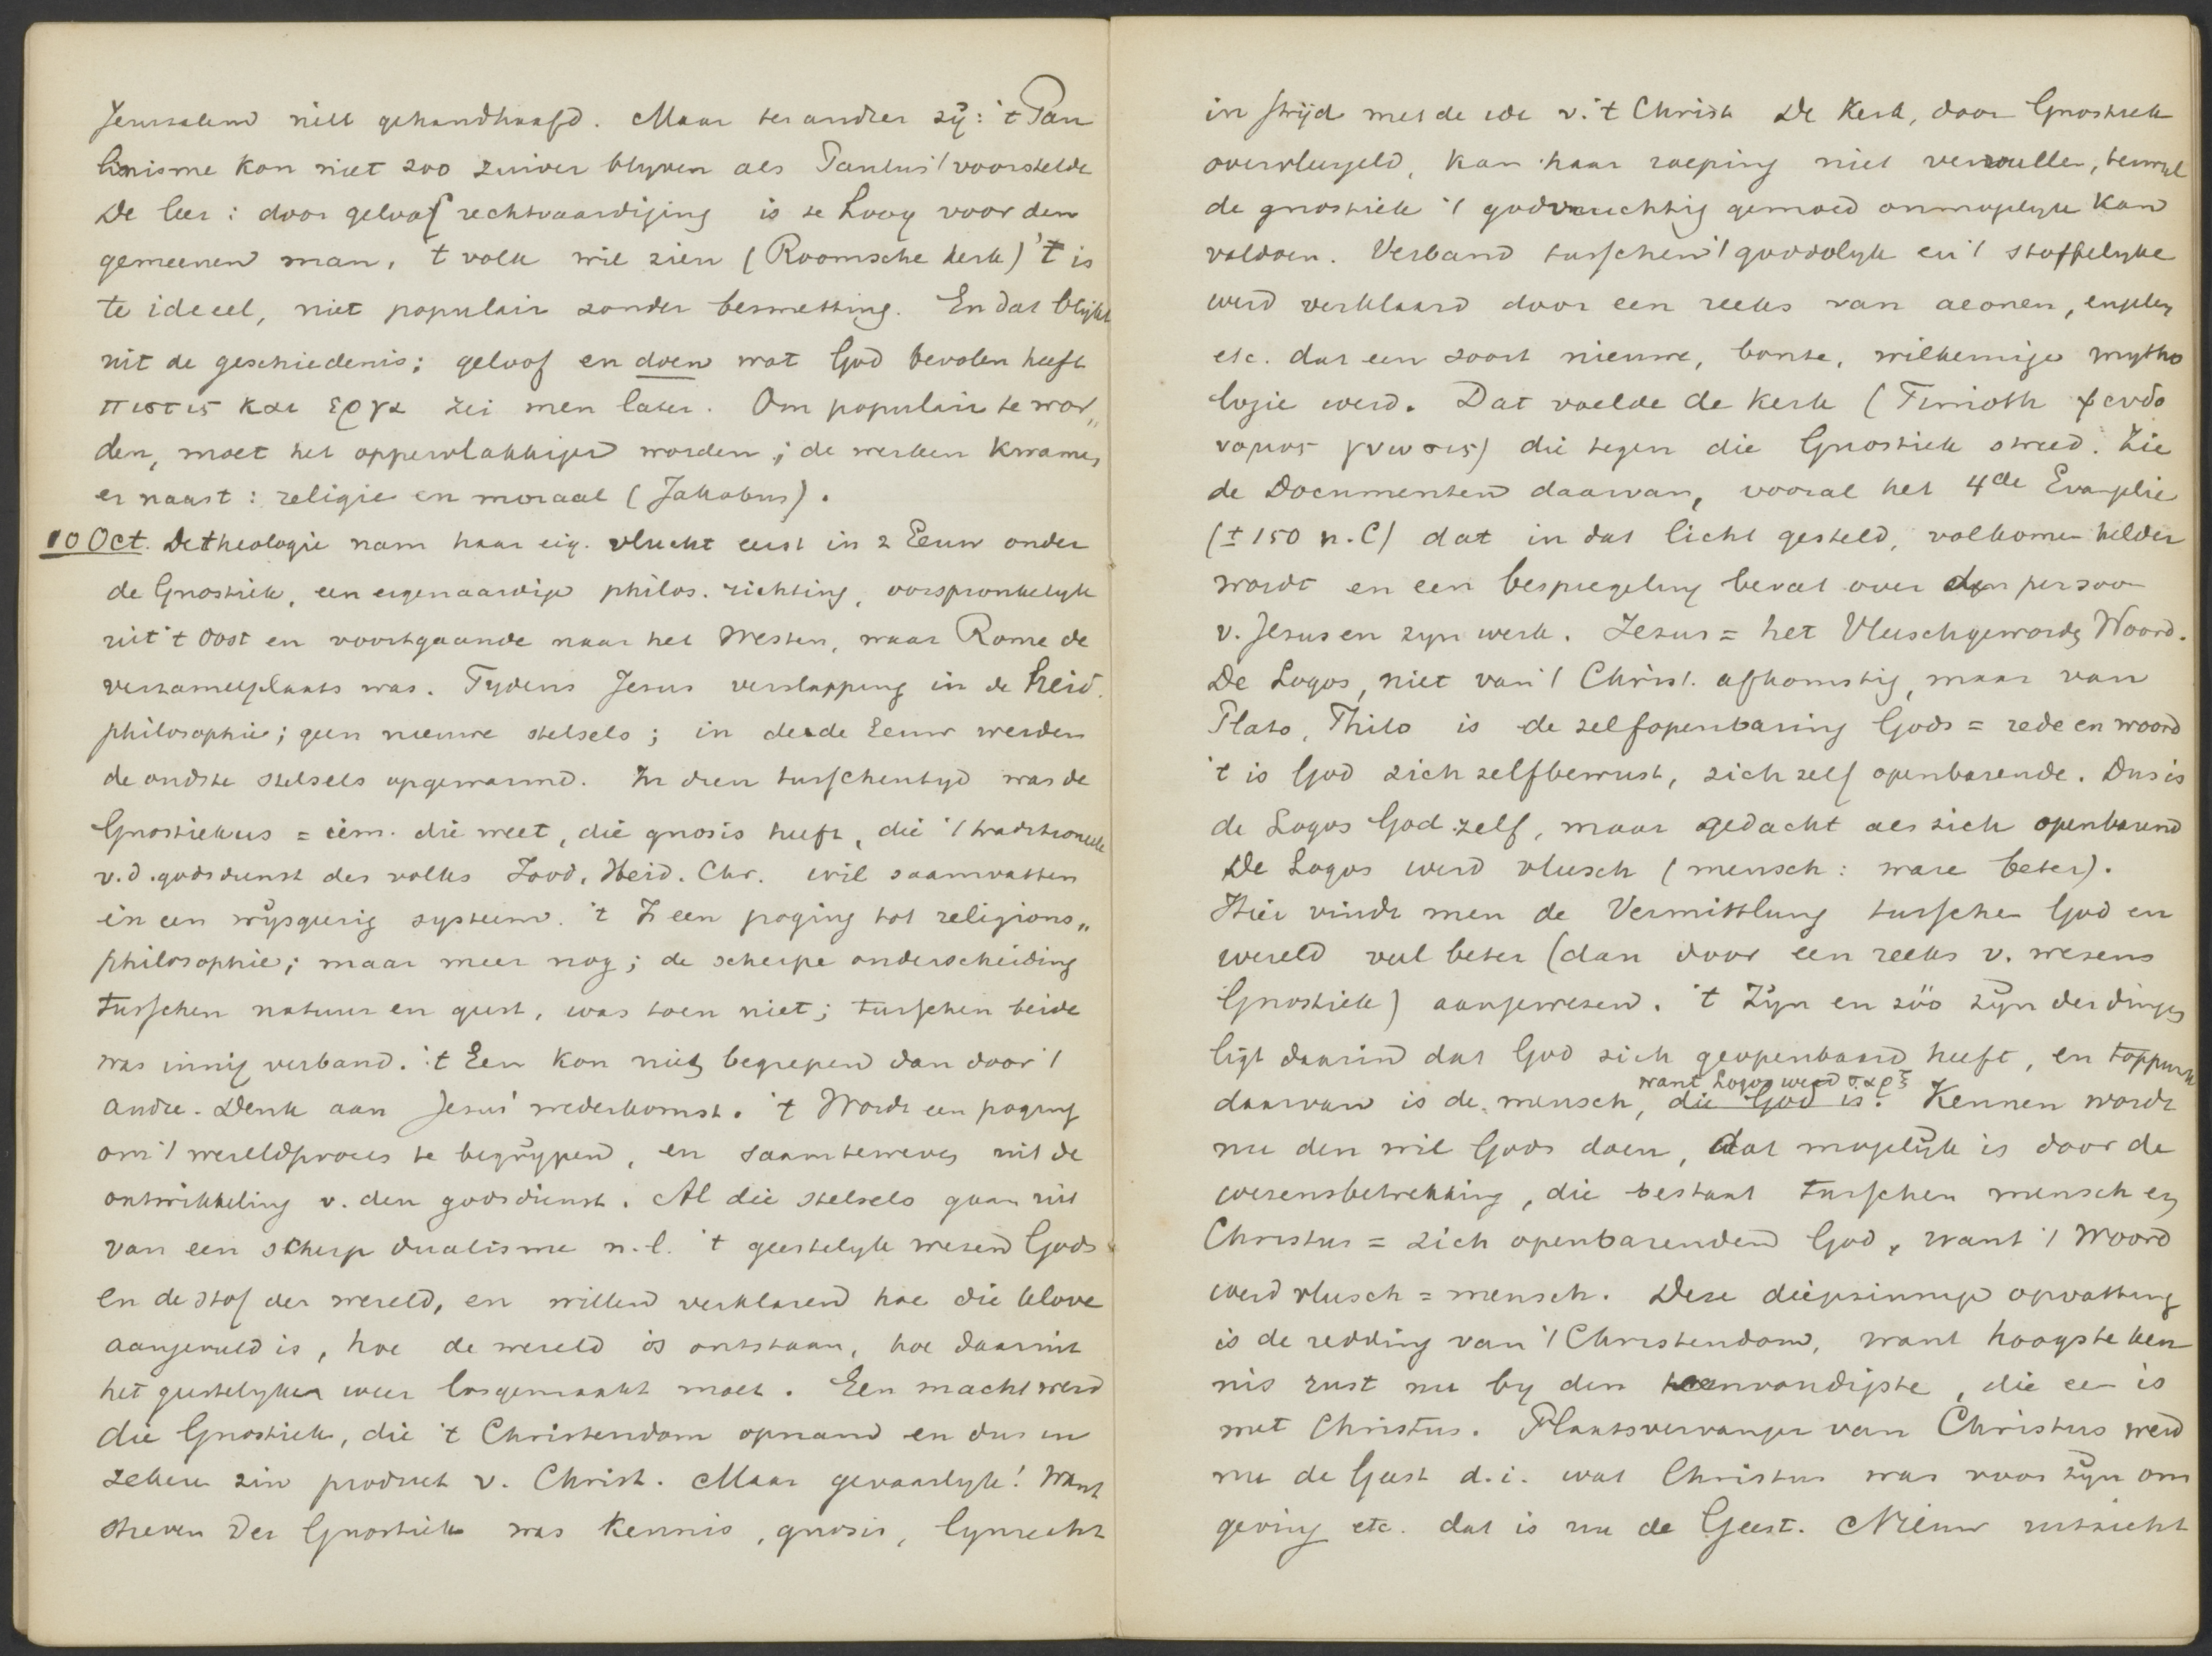 Jeruzalem niet gehandhaafd. Maar ter andrer zij: 't Pau
linisme kon niet zoo zuiver blijven als Paulus 't voorstelde
De leer: door geloof rechtvaardiging is te hoog voor den
gemeenen man. 't volk wil zien (Roomsche kerk) 't is
te ideeel, niet populair zonder besmetting. En dat blijkt
uit de geschiedenis; geloof en doen wat God bevolen heeft
πιστις και εργα zei men later. Om populair te wor„
den, moet het oppervlakkiger worden; de werken kwamen
er naast: religie en moraal (Jakobus).
10 Oct. De theologie nam haar eig. vlucht eerst in 2 Eeuw onder
de Gnostiek, een eigenaardige philos. richting, oorspronkelyk
uit 't Oost en voortgaande naar het Westen, waar Rome de
verzamelplaats was. Tydens Jesus verslapping in de heid.
philosophie; geen nieuwe stelsels; in derde Eeuw werden
de oudste stelsels opgewarmd. In dien tusschentyd was de
Gnostiekus = iem. die weet, die gnosis heeft, die 't traditioneele
v.d. godsdienst des volks Jood, Heid. Chr. wil saamvatten
in een wijsgeerig systeem. 't Is een poging tot religions„
philosophie; maar meer nog; de scherpe onderscheiding
tusschen natuur en geest, was toen niet; tusschen beide
was innig verband. 't Een kon niet begrepen dan door 't
andre. Denk aan Jesus' wederkomst. 't Wordt een poging
om 't wereldproces te begrijpen, en saamteweven uit de
ontwikkeling v. den godsdienst. Al die stelsels gaan uit
van een scherp dualisme n.l. 't geestelyk wezen Gods
en de stof der wereld, en willen verklaren hoe die klove
aangevuld is, hoe de wereld is ontstaan, hoe daaruit
het geestelyke weer losgemaakt moet. Een macht werd
die Gnostiek, die 't Christendom opnam en dus in
zekere zin product v. Christ. Maar gevaarlyk! Want
streven der Gnostiek was kennis, gnosis, lynrecht
in strijd met de ide v. 't Christ. De Kerk, door Gnostiek
overvleugeld, kan haar roeping niet vervullen, terwyl
de gnostiek 't godvruchtig gemoed onmogelyk kan
voldoen. Verband tusschen 't goddelyk en 't stoffelyke
werd verklaard door een reeks van aeonen, engelen
etc. dat een soort nieuwe, bonte, willekeurige mytho
logie werd. Dat voelde de kerk (Timoth ψευδο
νομος γνωσις) die tegen die Gnostiek streed. Zie
de Documenten daarvan, vooral het 4de Evangelie
(± 150 n.C) dat in dat licht gesteld, volkomen helder
wordt en een bespiegeling bevat over den persoon
v. Jesus en zyn werk. Jezus = het Vleeschgeworden Woord.
De Logos, niet van 't Christ. afkomstig, maar van
Plato, Philo is de zelfopenbaring Gods = rede en woord
't is God zich zelfbewust, zich zelf openbarende. Dus is
de Logos God zelf, maar gedacht als zich openbarend
De Logos werd vleesch (mensch: ware beter).
Hier vindt men de Vermittlung tusschen God en
wereld veel beter (dan door een reeks v. wezens
Gnostiek) aangewezen. 't Zijn en zóó zijn der dingen
ligt daarin dat God zich geopenbaard heeft, en toppunt
want Logos werd σαρξ
daarvan is de mensch, die God is. Kennen wordt
nu den wil Gods doen, dat mogelijk is door de
wezensbetrekking, die bestaat tusschen mensch en
Christus = zich openbarenden God, want 't Woord
werd vleesch = mensch. Deze diepzinnige opvatting
is de redding van 't Christendom, want hoogste ken
nis rust nu by den eenvoudigste, die een is
met Christus. Plaatsvervanger van Christus werd
nu de Geest d.i. wat Christus was voor zijn om
geving etc. dat is nu de Geest. Nieuw uitzicht